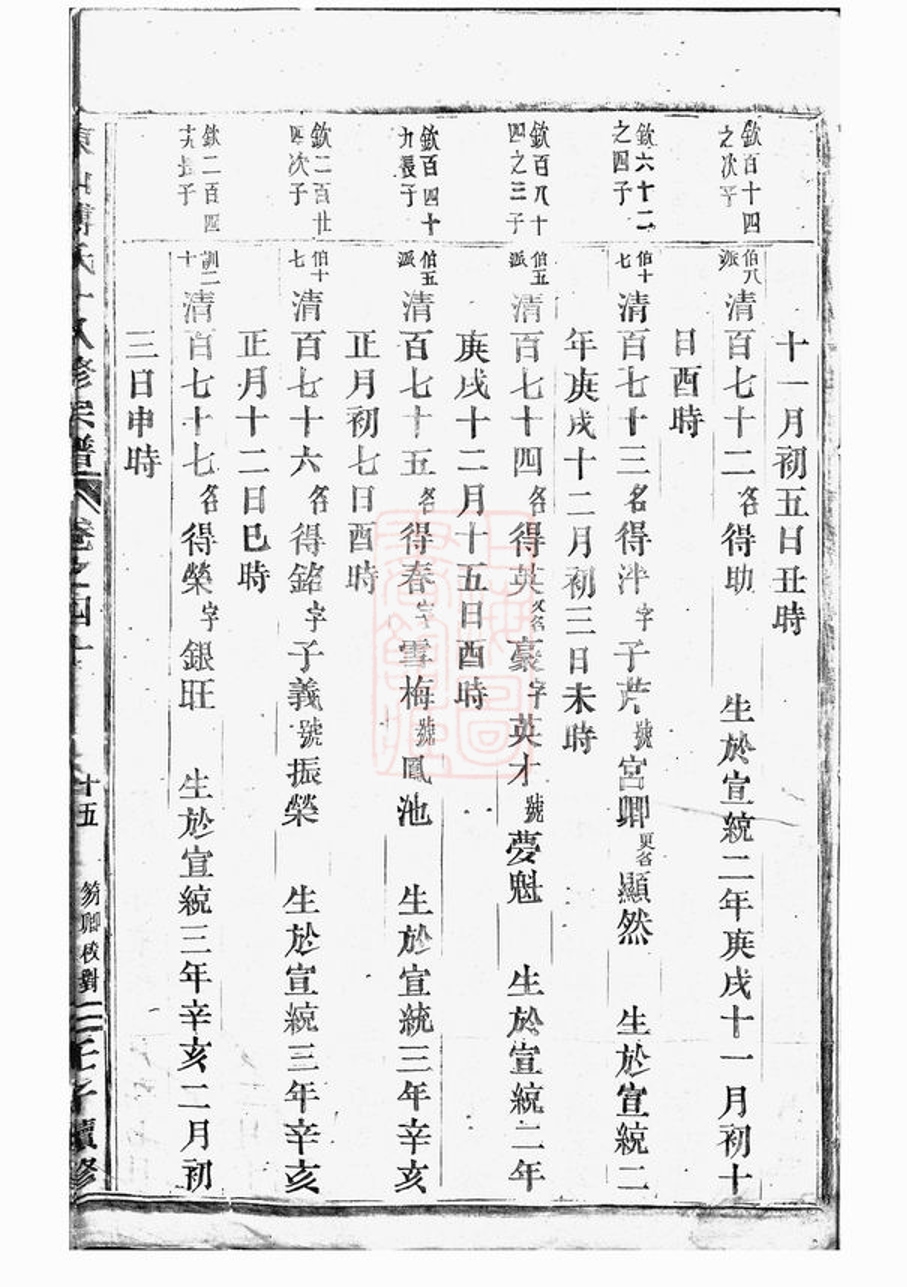 十一月初五日丑時
欽百十四
之次子
伯八
派
清百七十二名得助 生於宣統二年庚戌十一月初十
日酉時
欽六十二
之四子
伯十
七
清百七十三名得泮字子芹號宮卿更名顯然 生於宣統二
年庚戌十二月初三日未時
欽百八十
四之三子
伯五
派
清百七十四名得英又名豪字英才號夢魁 生於宣統二年
庚戌十二月十五日酉時
欽百四十
九長子
伯五
派
清百七十五名得春字雪梅號鳳池 生於宣統三年辛亥
正月初七日酉時
欽二百廿
四次子
伯十
七
清百七十六名得銘字子義號振榮 生於宣統三年辛亥
正月十二日巳時
欽二百四
長子
訓二
十
清百七十七名得榮字銀旺 生於宣統三年辛亥二月初
三日申時
氏十八修宗譜 卷之四十 十五 卿校對 壬子續修